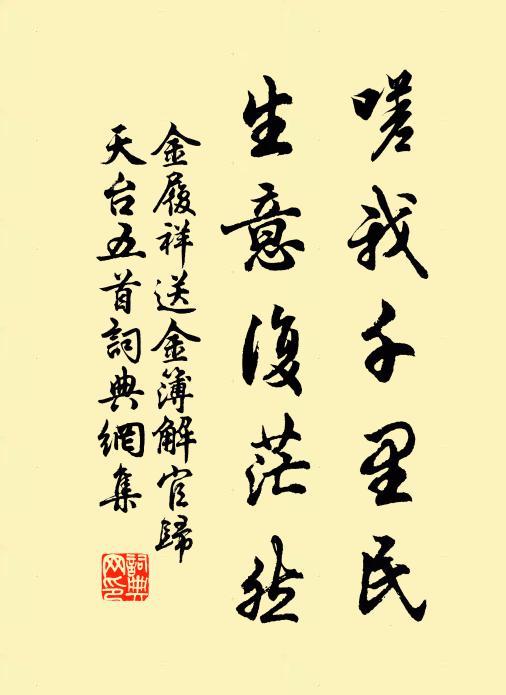 嗟我千里民
生意復茫然
金履祥送金簿解官歸
天台五首詞典網集
詞典
网印